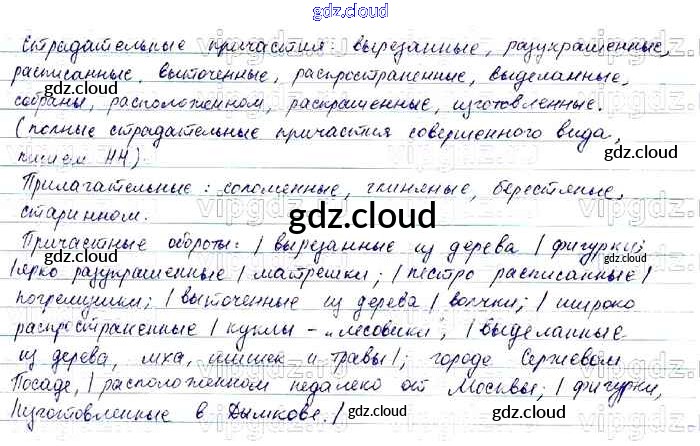 gdz.cloud
Страдательные причастия: вырезанные, разукрашенные,
расписанные, выточенные, распространенные, выделанные,
собраны, расположенном, раскрашенные, изготовленные.
(полные страдательные причастия совершенного вида,
пишем НН)
Прилагательные: соломенные, глиняные, берестяные,
старинном.
Причастные обороты: | вырезанные из дерева | фигурки;
| ярко разукрашенные | матрешки; | пестро расписанные |
погремушки; | выточенные из дерева | волчки; | широко
распространенные | куклы – „лесовики“; | выделанные
из дерева, мха, шишек и травы |; городе Сергиевом
Посаде, | расположенном недалеко от Москвы; | фигурки,
| изготовленные в Дымкове. |
gdz.cloud
gdz.cloud
gdz.cloud
gdz.cloud
gdz.cloud
gdz.cloud
gdz.cloud
gdz.cloud
gdz.cloud